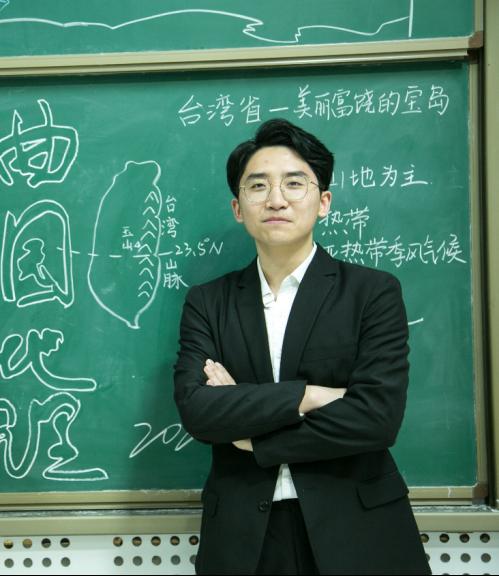 台湾省—美丽富饶的宝岛
中国地理
玉山
台湾山脉
23.5°N
山地为主
热带
亚热带季风气候